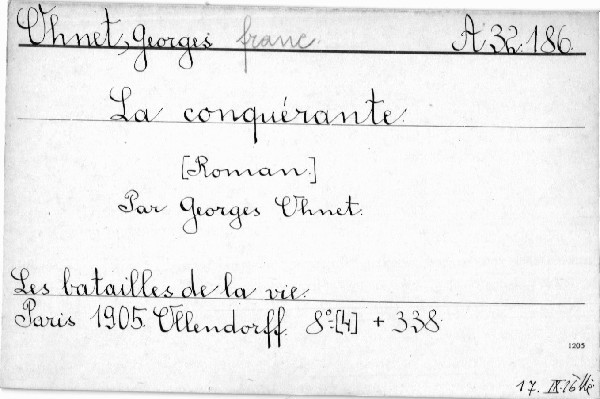 Ohnet, Georges franc. A 32.186
La conquérante.
[Roman.]
Par Georges Ohnet.
Les batailles de la vie.
Paris 1905. Ollendorff. 8° [4] + 338
1205
17. IX.